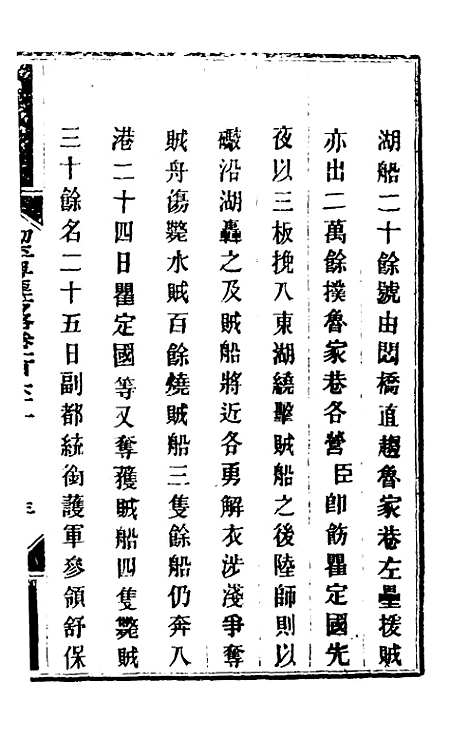 湖船二十餘號由悶橋直趨魯家巷左壘援賊
亦出二萬餘撲魯家巷各營臣卽飭瞿定國先
夜以三板挽入東湖繞擊賊船之後陸師則以
礮沿湖轟之及賊船將近各勇解衣涉淺爭奪
賊舟傷斃水賊百餘燒賊船三隻餘船仍奔入
港二十四日瞿定國等又奪獲賊船四隻斃賊
三十餘名二十五日副都統銜護軍參領舒保
三